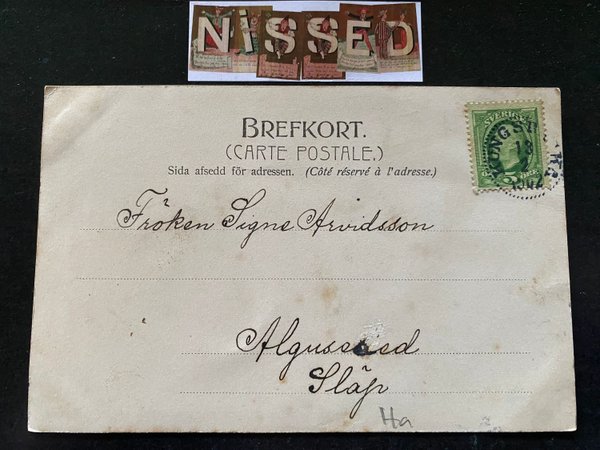 NiSSED
BREFKORT.
(CARTE POSTALE.)
Sida afsedd för adressen. (Côté réservé à l'adresse.)
SVERIGE
KUNGSBACKA
13
1902
Fröken Signe Arvidsson
Släp
Ha